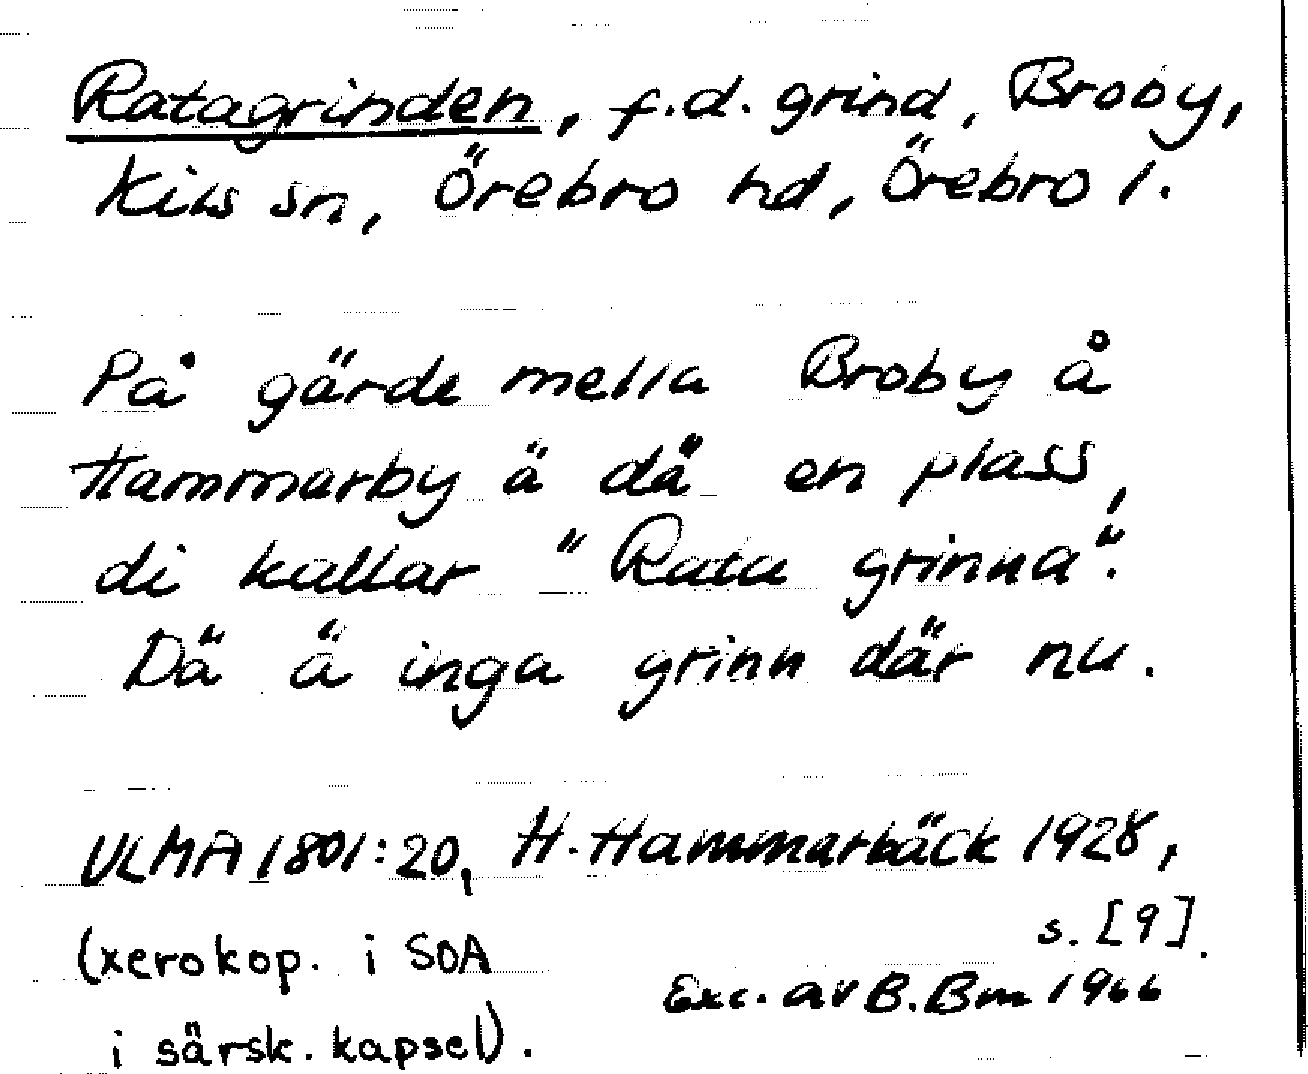 Ratagrinden, f.d. grind, Broby,
Kils sn, Örebro hd, Örebro l.
På gärde mella Broby å
Hammarby ä dä en plass,
di kallar "Rata grinna".
Dä ä inga grinn där nu.
ULMA 1801:20, H. Hammarbäck 1928,
s. [9].
(xerokop. i SOA
i särsk. kapsel).
Exc. av B. Bm 1966